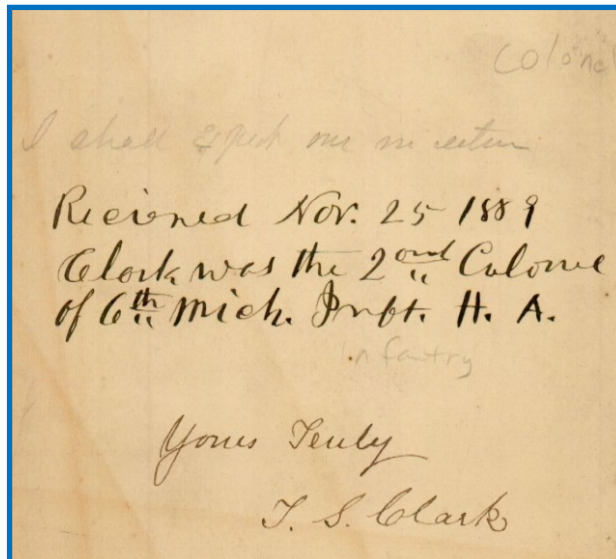 Colonel
I shall expect one in return
Recieved Nov. 25 1889
Clark was the 2ond Colonel
of 6th Mich. Inft. H. A.
Infantry
Yours Truly
T. S. Clark